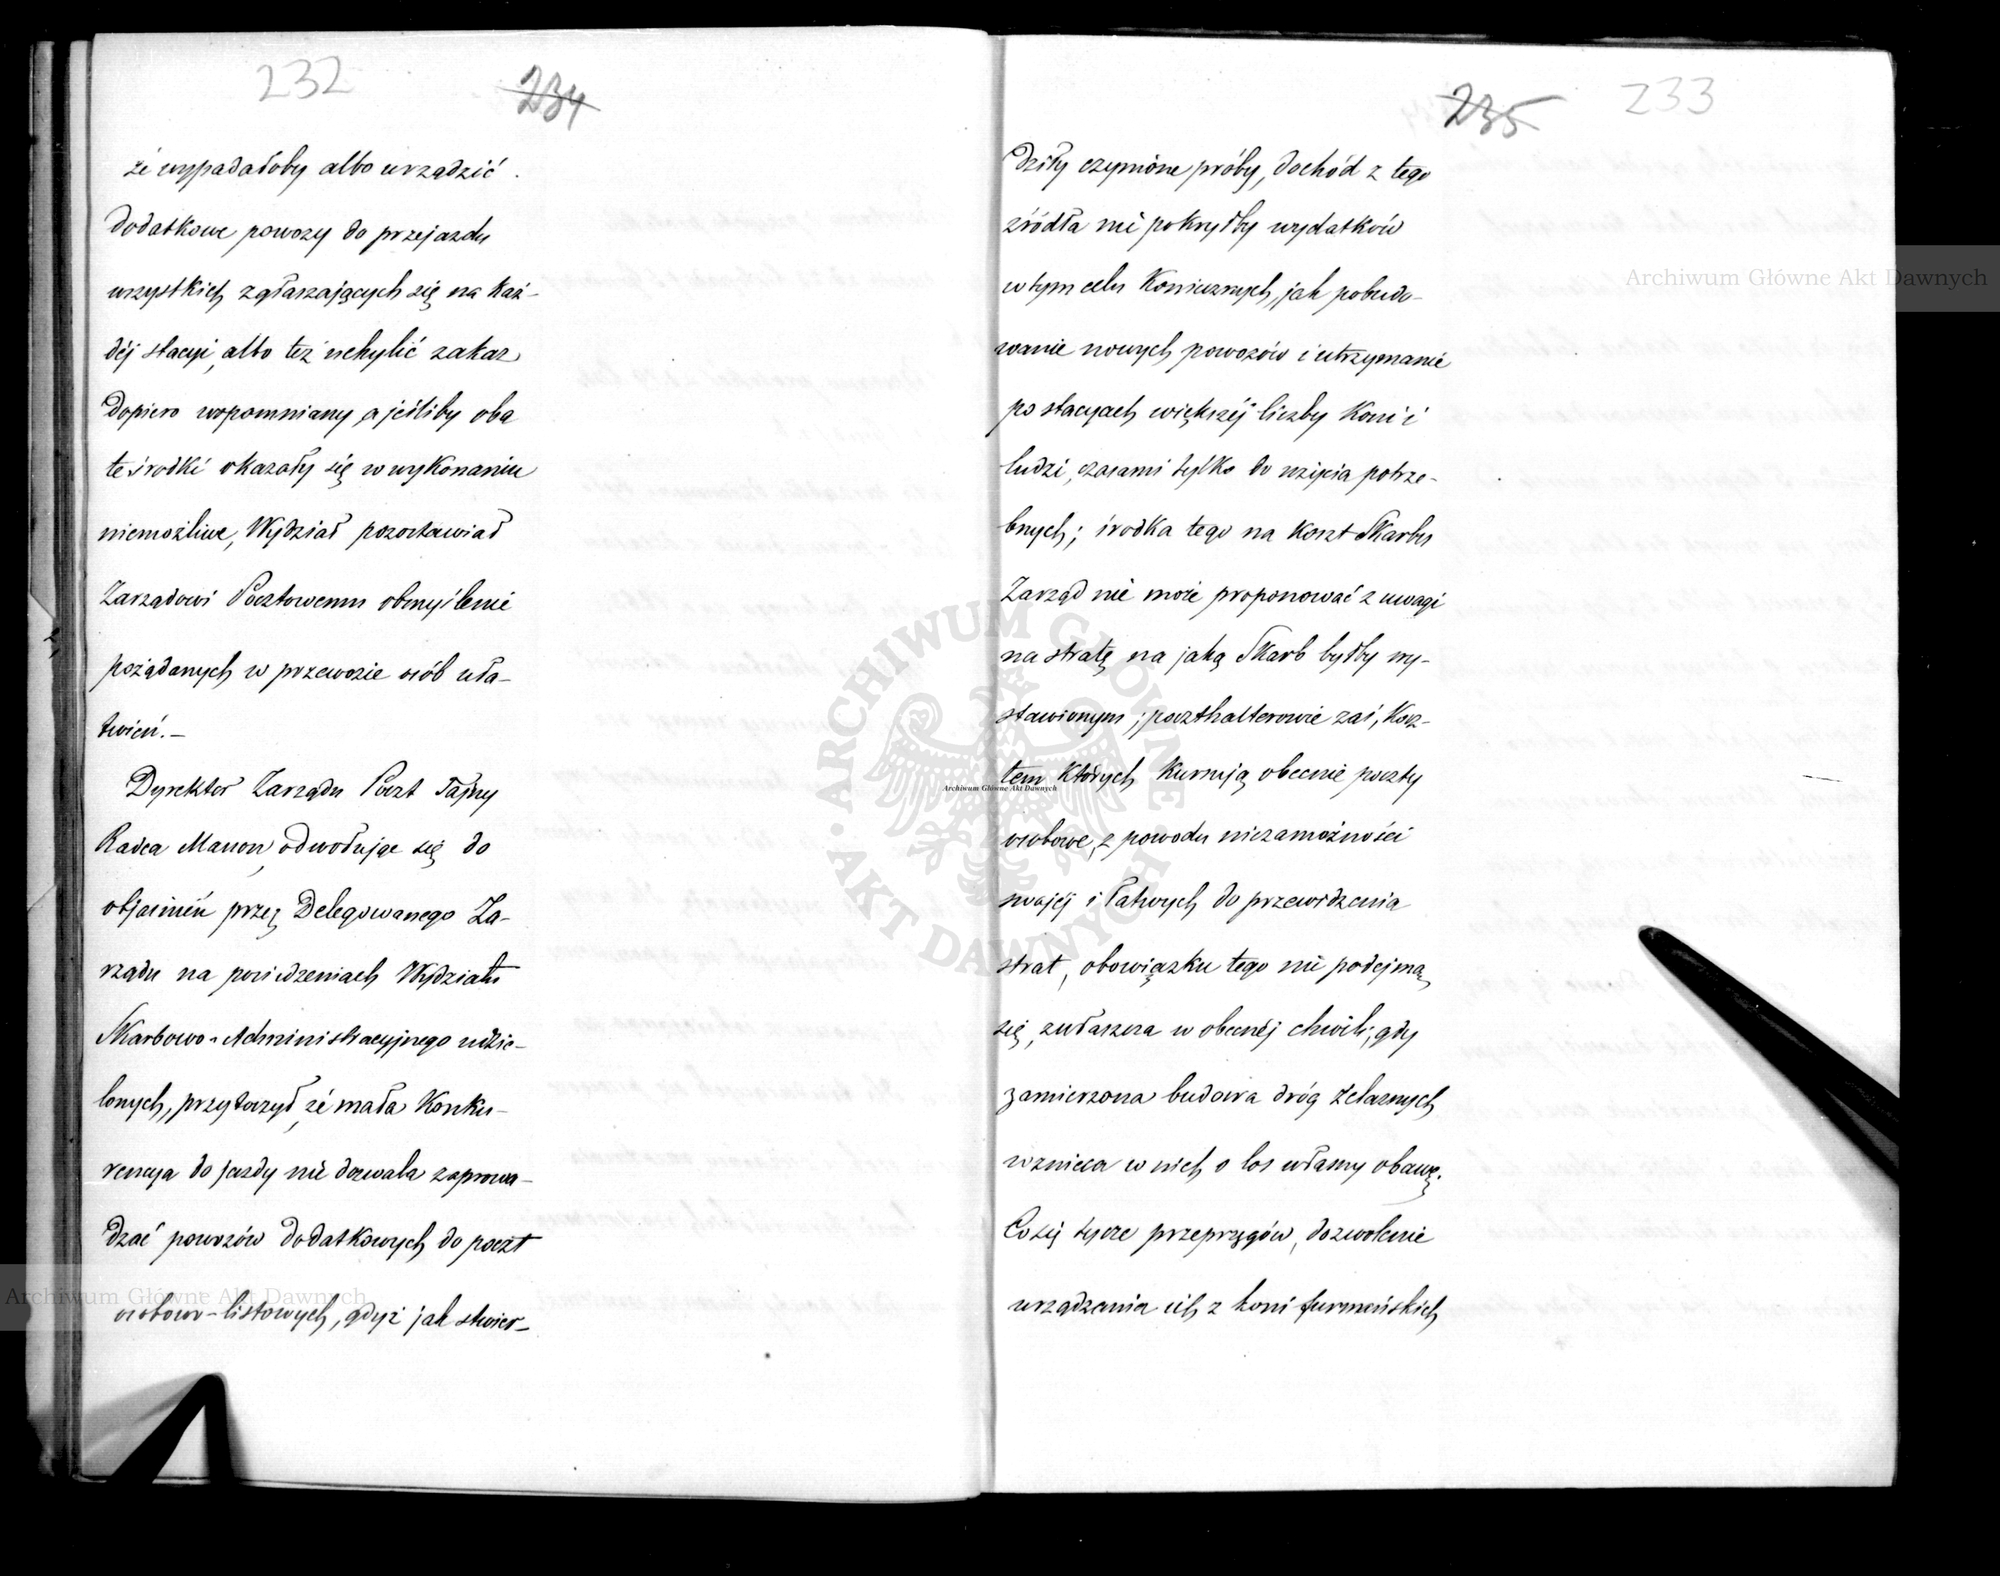 232
234
że wypadałoby albo urządzić
dodatkowe powozy do przejazdu
wszystkich zgłaszających się na każ-
déj stacyi, albo też uchylić zakaz
dopiero wspomniany, a jeśliby oba
te środki okazały się w wykonaniu
niemożliwe, Wydział pozostawiał
Zarządowi Pocztowemu obmyślenie
pożądanych w przewozie osób uła-
twień.—
Dyrektor Zarządu Poczt Tajny
Radca Mauon, odwołując się do
objaśnień przez Delegowanego Za-
rządu na posiedzeniach Wydziału
Skarbowo-Administracyjnego udzie-
lonych, przytoczył, że mała Konku-
rencya do jazdy nie dozwala zaprowa-
dzać powozów dodatkowych do poczt
osobowo-listowych, gdyż jak stwier-
235
233
dziły czynione próby, dochód z tego
źródła nie pokryłby wydatków
w tym celu Koniecznych, jak pobudo-
wanie nowych powozów i utrzymanie
po stacyach większéj liczby Koni i
ludzi, czasami tylko do użycia potrze-
bnych; środka tego na Koszt Skarbu
Zarząd nie może proponować z uwagi
na stratę na jaką Skarb byłby wy-
stawionym; poczthalterowie zaś, Kosz-
tem Których Kursują obecnie poczty
osobowe, z powodu niezamożności
swojéj i łatwych do przewidzenia
strat, obowiązku tego nie podejmą
się, zwłaszcza w obecnéj chwili, gdy
zamierzona budowa dróg żelaznych
wznieca w nich o los własny obawę.
Co się tycze przeprzęgów, dozwolenie
urządzania ich z koni furmańskich
Archiwum Główne Akt Dawnych
Archiwum Główne Akt Dawnych
Archiwum Główne Akt Dawnych
ARCHIWUM GŁÓWNE • AKT DAWNYCH •